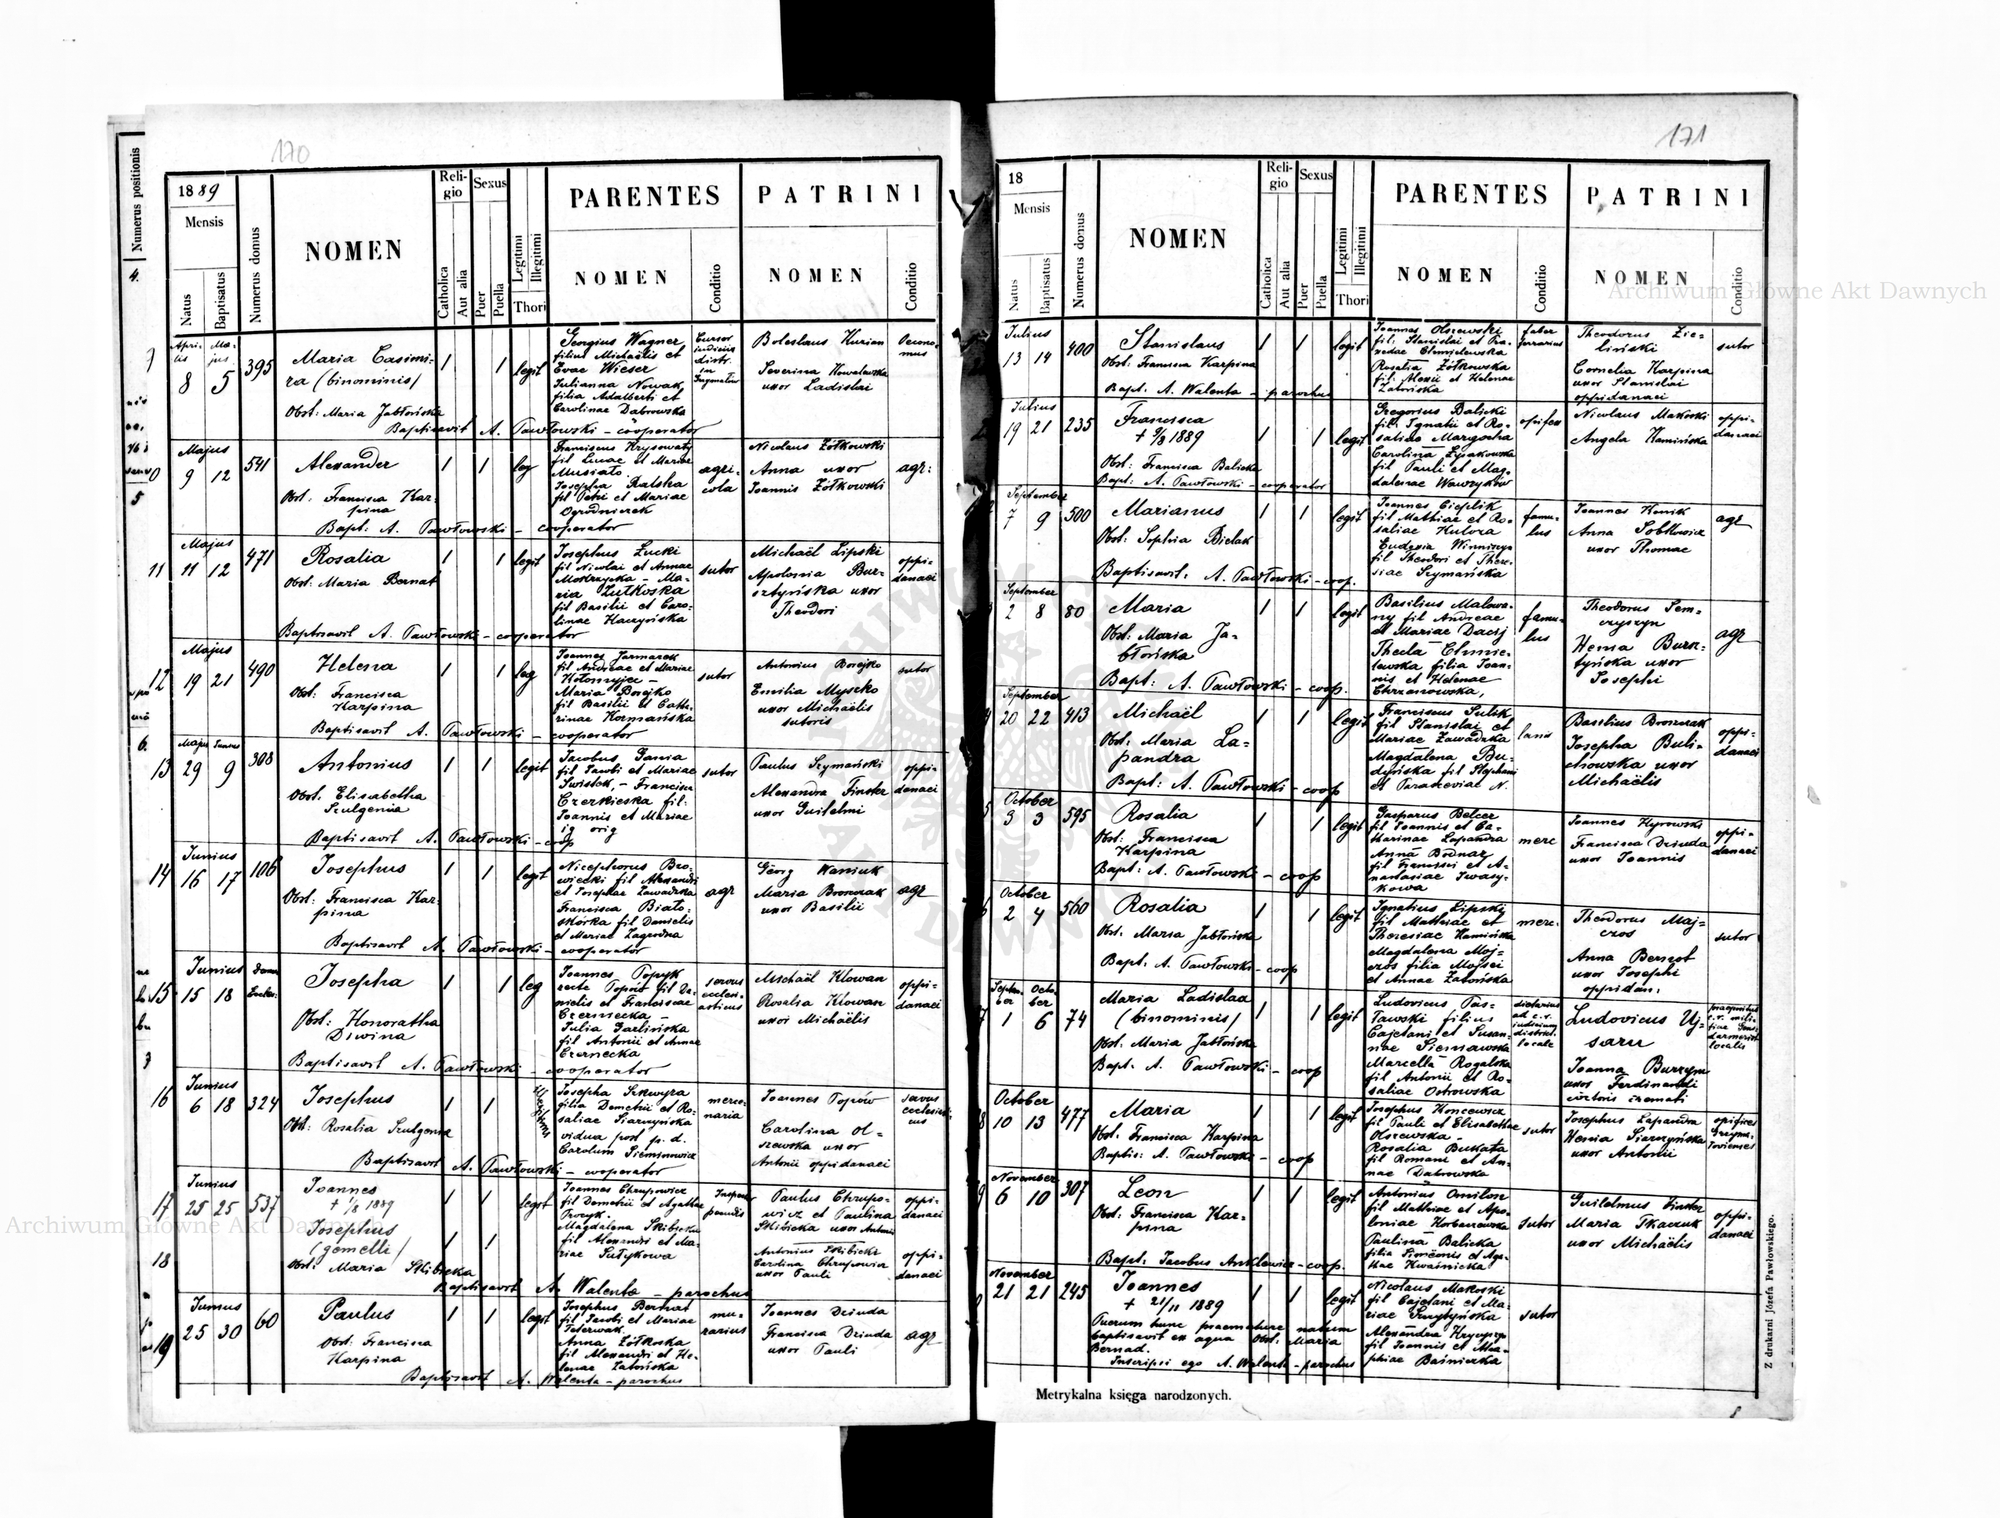 170
Numerus positionis
1889
Mensis
Natus
Baptisatus
Numerus domus
NOMEN
Religio
Catholica
Aut alia
Sexus
Puer
Puella
Legitimi
Illegitimi
Thori
PARENTES
NOMEN
Conditio
PATRINI
NOMEN
Conditio
Aprilis 8
Majus 5
395
Maria Casimi-
ra (binominis)
Obst: Maria Jabłońska
Baptisavit A. Pawłowski - cooperator
1 1 legit
Georgius Wagner
filius Michaëlis et
Evae Wieser
Julianna Nowak,
filia Adalberti et
Carolinae Dąbrowska
Boleslaus Kurian
Severina Kowalewska
uxor Ladislai
Oecono-
mus
Majus
9 12 541
Alexander
Obst. Francisca Kar-
pina
Bapt. A. Pawłowski - cooperator
1 1 leg
Franciscus Krysowaty
fil Lucae et Mariae
Musiato
Josepha Ratska
fil Petri et Mariae
Ogrodniczek
agri-
cola
Nicolaus Żółkowski
Anna uxor
Joannis Żółkowski
agr:
11
Majus
11 12 471
Rosalia
Obst: Maria Bernat
Baptisavit A. Pawłowski - cooperator
1 1 legit
Josephus Łucki
fil Nicolai et Annae
Mokrzycka - Ma-
ria Żutkoska
fil Basilii et Caro-
linae Kaczyńska
sutor
Michaël Lipski
Apolonia Bur-
sztyńska uxor
Theodori
oppi-
danaei
12
Majus
19 21 490
Helena
Obst: Francisca
Karpina
Baptisavit A. Pawłowski - cooperator
1 1 leg
Joannes Jarmarek
fil Andreae et Mariae
Kołomyjec -
Maria Borejko
fil Basilii et Catha-
rinae Kormańska
sutor
Antonius Borejko
Emilia Myszko
uxor Michaëlis
sutoris
sutor
13
Majus Junius
29 9 308
Antonius
Obst. Elisabetha
Szulgenia
Baptisavit A. Pawłowski - coop
1 1 legit
Jacobus Gania
fil Jacobi et Mariae
Swistek, - Francisca
Czerkieska fil:
Joannis et Mariae
ig orig
sutor
Paulus Szymański
Alexandra Finster
uxor Guilelmi
oppi-
danaei
14
Junius
16 17 106
Josephus
Obst: Francisca Kar-
pina
Baptisavit A. Pawłowski - cooperator
1 1 legit
Nicephorus Bro-
wiecki fil Alexandri
et Josephae Zawadzka
Francisca Biało-
skórka fil Danielis
et Mariae Zagrodna
agr
Georg Waniuk
Maria Bronczak
uxor Basilii
agr
15
Junius
15 18
Josepha
Obst: Honoratha
Diwina
Baptisavit A. Pawłowski - cooperator
1 1 leg
Joannes Popyk
recte Popów fil Da-
nielis et Franciscae
Czernecka -
Julia Garlińska
fil Antonii et Annae
Czernecka
servus
ecclesi-
asticus
Michaël Klowan
Rosalia Klowan
uxor Michaëlis
oppi-
danaei
16
Junius
6 18 324
Josephus
Obst: Rosalia Szulgenia
Baptisavit A. Pawłowski - cooperator
1 1
Josepha Szkwyra
filia Demetrii et Ro-
saliae Siarczyńska
vidua post p. d.
Carolum Sieminowicz
merce-
naria
Joannes Popów
Carolina Ol-
szewska uxor
Antonii oppidanaei
servus
17
Junius
25 25 537
Joannes
+ 1/8 1889
Josephus
(gemelli)
Obst: Maria Skibicka
Baptisavit A. Walenta - parochus
1 1 legit
Joannes Chrupowicz
fil Demetrii et Agathae
Procyk.
Magdalena Skibicka
fil Alexandri et Ma-
riae Sutykowa
Paulus Chrupo-
wicz et Paulina
Skibicka uxor Antonii
oppi-
danaei
18
1 1
Antonius Skibicki
Carolina Chrupowicz
uxor Pauli
oppi-
danaei
19
Junius
25 30 60
Paulus
Obst: Francisca
Karpina
Baptisavit A. Walenta - parochus
1 1 legit
Josephus Bernat
fil Jacobi et Mariae
Teterwak
Anna Żółkoska
fil Alexandri et He-
lenae Zatońska
mu-
rarius
Joannes Dziuda
Francisca Dziuda
uxor Pauli
agr
171
18
Mensis
Natus
Baptisatus
Numerus domus
NOMEN
Religio
Catholica
Aut alia
Sexus
Puer
Puella
Legitimi
Illegitimi
Thori
PARENTES
NOMEN
Conditio
PATRINI
NOMEN
Conditio
Julius
13 14 400
Stanislaus
Obst: Francisca Karpina
Bapt. A. Walenta - parochus
1 1 legit
Joannes Olszewski
fil: Stanislai et Pra-
xedae Chmielewska
Rosalia Żółkowska
fil: Alexii et Helenae
Zatońska
faber
ferrarius
Theodorus Zie-
liński
Cornelia Karpina
uxor Stanislai
oppidanaei
sutor
Julius
19 21 235
Francisca
+ 9/8 1889
Obst: Francisca Balicka
Bapt: A. Pawłowski - cooperator
1 1 legit
Gregorius Balicki
fil: Ignatii et Ro-
saliae Margocha
Carolina Łysakowska
fil Pauli et Mag-
dalenae Wawryków
opifex
Nicolaus Makoski
Angela Kamińska
oppi-
danaei
September
7 9 500
Marianus
Obst: Sophia Bielak
Baptisavit: A. Pawłowski - coop.
1 1 legit
Joannes Cieplik
fil Mathiae et Ro-
saliae Kulora
Eudoxia Winniczyn
fil Theodori et There-
siae Szymańska
famu-
lus
Joannes Konik
Anna Sobkowicz
uxor Thomae
agr
September
2 8 80
Maria
Obst: Maria Ja-
błońska
Bapt: A. Pawłowski - coop.
1 1 legit
Basilius Malowa-
ny fil Andreae
et Mariae Dacij
Thecla Chmie-
lewska filia Joan-
nis et Helenae
Chrzanowska,
famu-
lus
Theodorus Sem-
czyszyn
Xenia Bursz-
tyńska uxor
Josephi
agr
September
20 22 413
Michaël
Obst: Maria La-
pandra
Bapt: A. Pawłowski - coop
1 1 legit
Franciscus Sulik
fil Stanislai et
Mariae Zawadzka
Magdalena Bu-
dyńska fil Stephani
et Parasceviae N.
lanio
Basilius Bronczak
Josepha Buli-
chowska uxor
Michaëlis
oppi-
danaei
October
3 3 595
Rosalia
Obst: Francisca
Karpina
Bapt: A. Pawłowski - coop
1 1 legit
Gasparus Belcer
fil Joannis et Ca-
tharinae Lapandra
Anna Bodnar
fil Francisci et A-
nastasiae Iwasy-
kowa
merc
Joannes Kyrowski
Francisca Dziuda
uxor Joannis
oppi-
danaei
October
2 4 560
Rosalia
Obst. Maria Jabłońska
Bapt: A. Pawłowski - coop
1 1 legit
Ignatius Lipski
fil Mathiae et
Theresiae Kamińska
Magdalena Moj-
czos filia Mojsei
et Annae Zatońska
merc.
Theodorus Moj-
czos
Anna Bernat
uxor Josephi
oppidan:
sutor
Septem-
ber Octo-
ber
1 6 74
Maria Ladislaa
(binominis)
Obst: Maria Jabłońska
Bapt: A. Pawłowski - coop
1 1 legit
Ludovicus Pas-
ławski filius
Cajetani et Susan-
nae Sieniawska
Marcella Rogalska
fil Antonii et Ro-
saliae Ostrowska
Ludovicus Uj-
saru
Joanna Burzym
uxor Ferdinandi
October
10 13 477
Maria
Obst: Francisca Karpina
Baptis: A. Pawłowski - coop
1 1 legit
Josephus Koncewicz
fil Pauli et Elisabethae
Olszewska -
Rosalia Bukata
fil Romani et An-
nae Dąbrowska
sutor
Josephus Lapandra
Xenia Siarczyńska
uxor Antonii
opifices
November
6 10 307
Leon
Obst: Francisca Kar-
pina
Bapt: Jacobus Ankiewicz - coop.
1 1 legit
Antonius Omilon
fil Mathiae et Apo-
loniae Korbanowska
Paulina Balicka
filia Simeonis et Aga-
thae Kwaśnicka
sutor
Guilelmus Finster
Maria Tkaczuk
uxor Michaëlis
oppi-
danaei
November
21 21 245
Joannes
+ 21/11 1889
Puerum hunc praemature natum
baptisavit ex aqua Obst: Maria
Bernad.
Inscripsi ego A. Walenta - parochus
1 1 legit
Nicolaus Makoski
fil Cajetani et Ma-
riae Szytyńska
Alexandra Hrycyszyn
fil Joannis et Ma-
phiae Baśniczka
sutor
Metrykalna księga narodzonych.
Z drukarni Józefa Pawłowskiego.
Archiwum Główne Akt Dawnych
Archiwum Główne Akt Dawnych